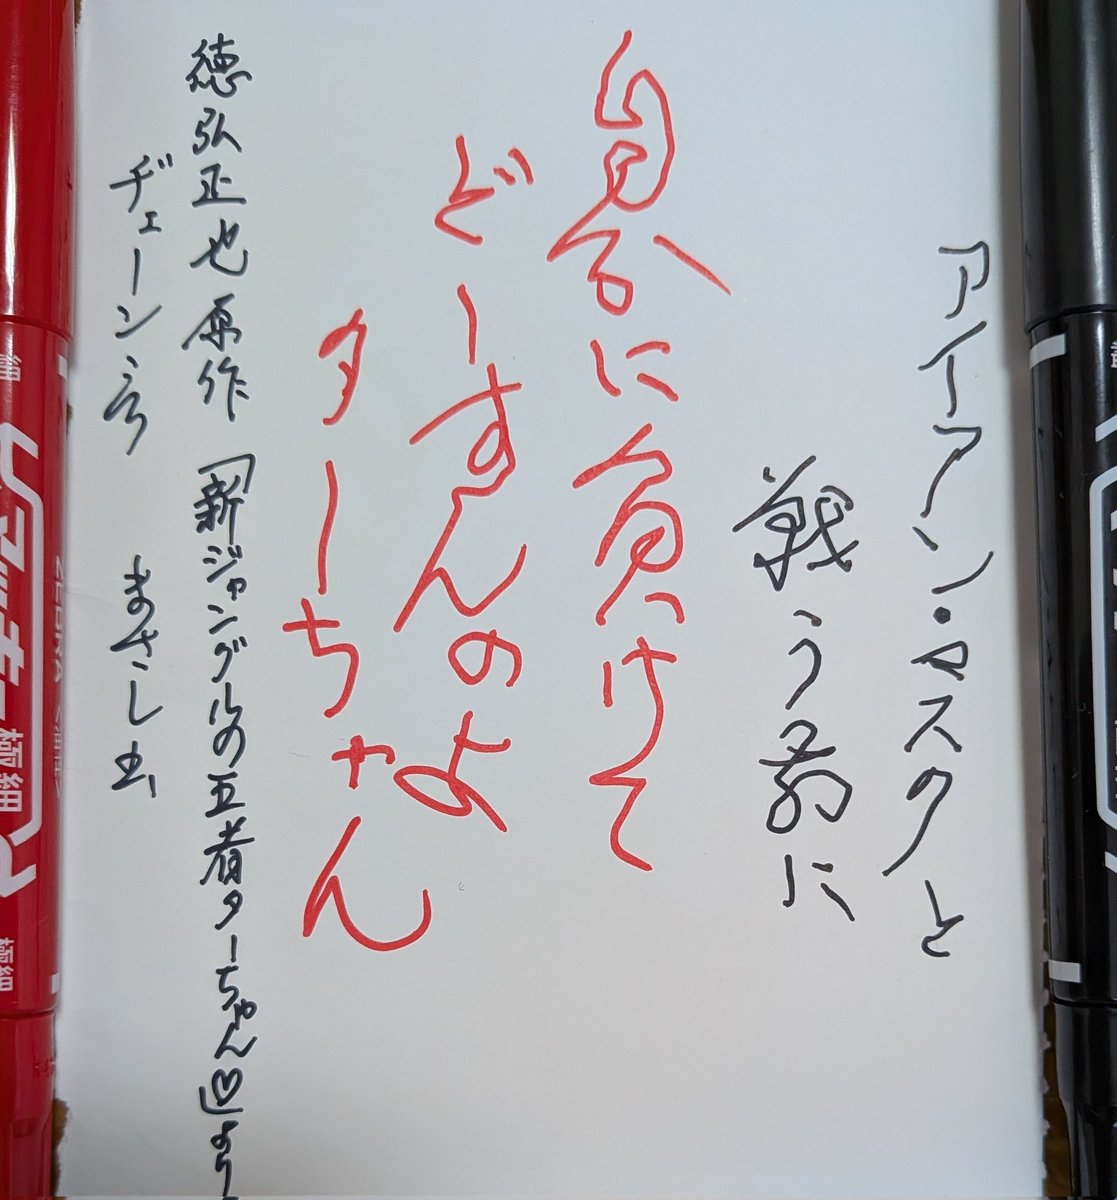 アイアン・マスクと
戦う前に
自分に負けて
どーすんのよ
ターちゃん
徳弘正也原作『新ジャングルの王者ターちゃん♡』より
ヂェーン言 まさし書
マッキー極細
ZEBRA
極細